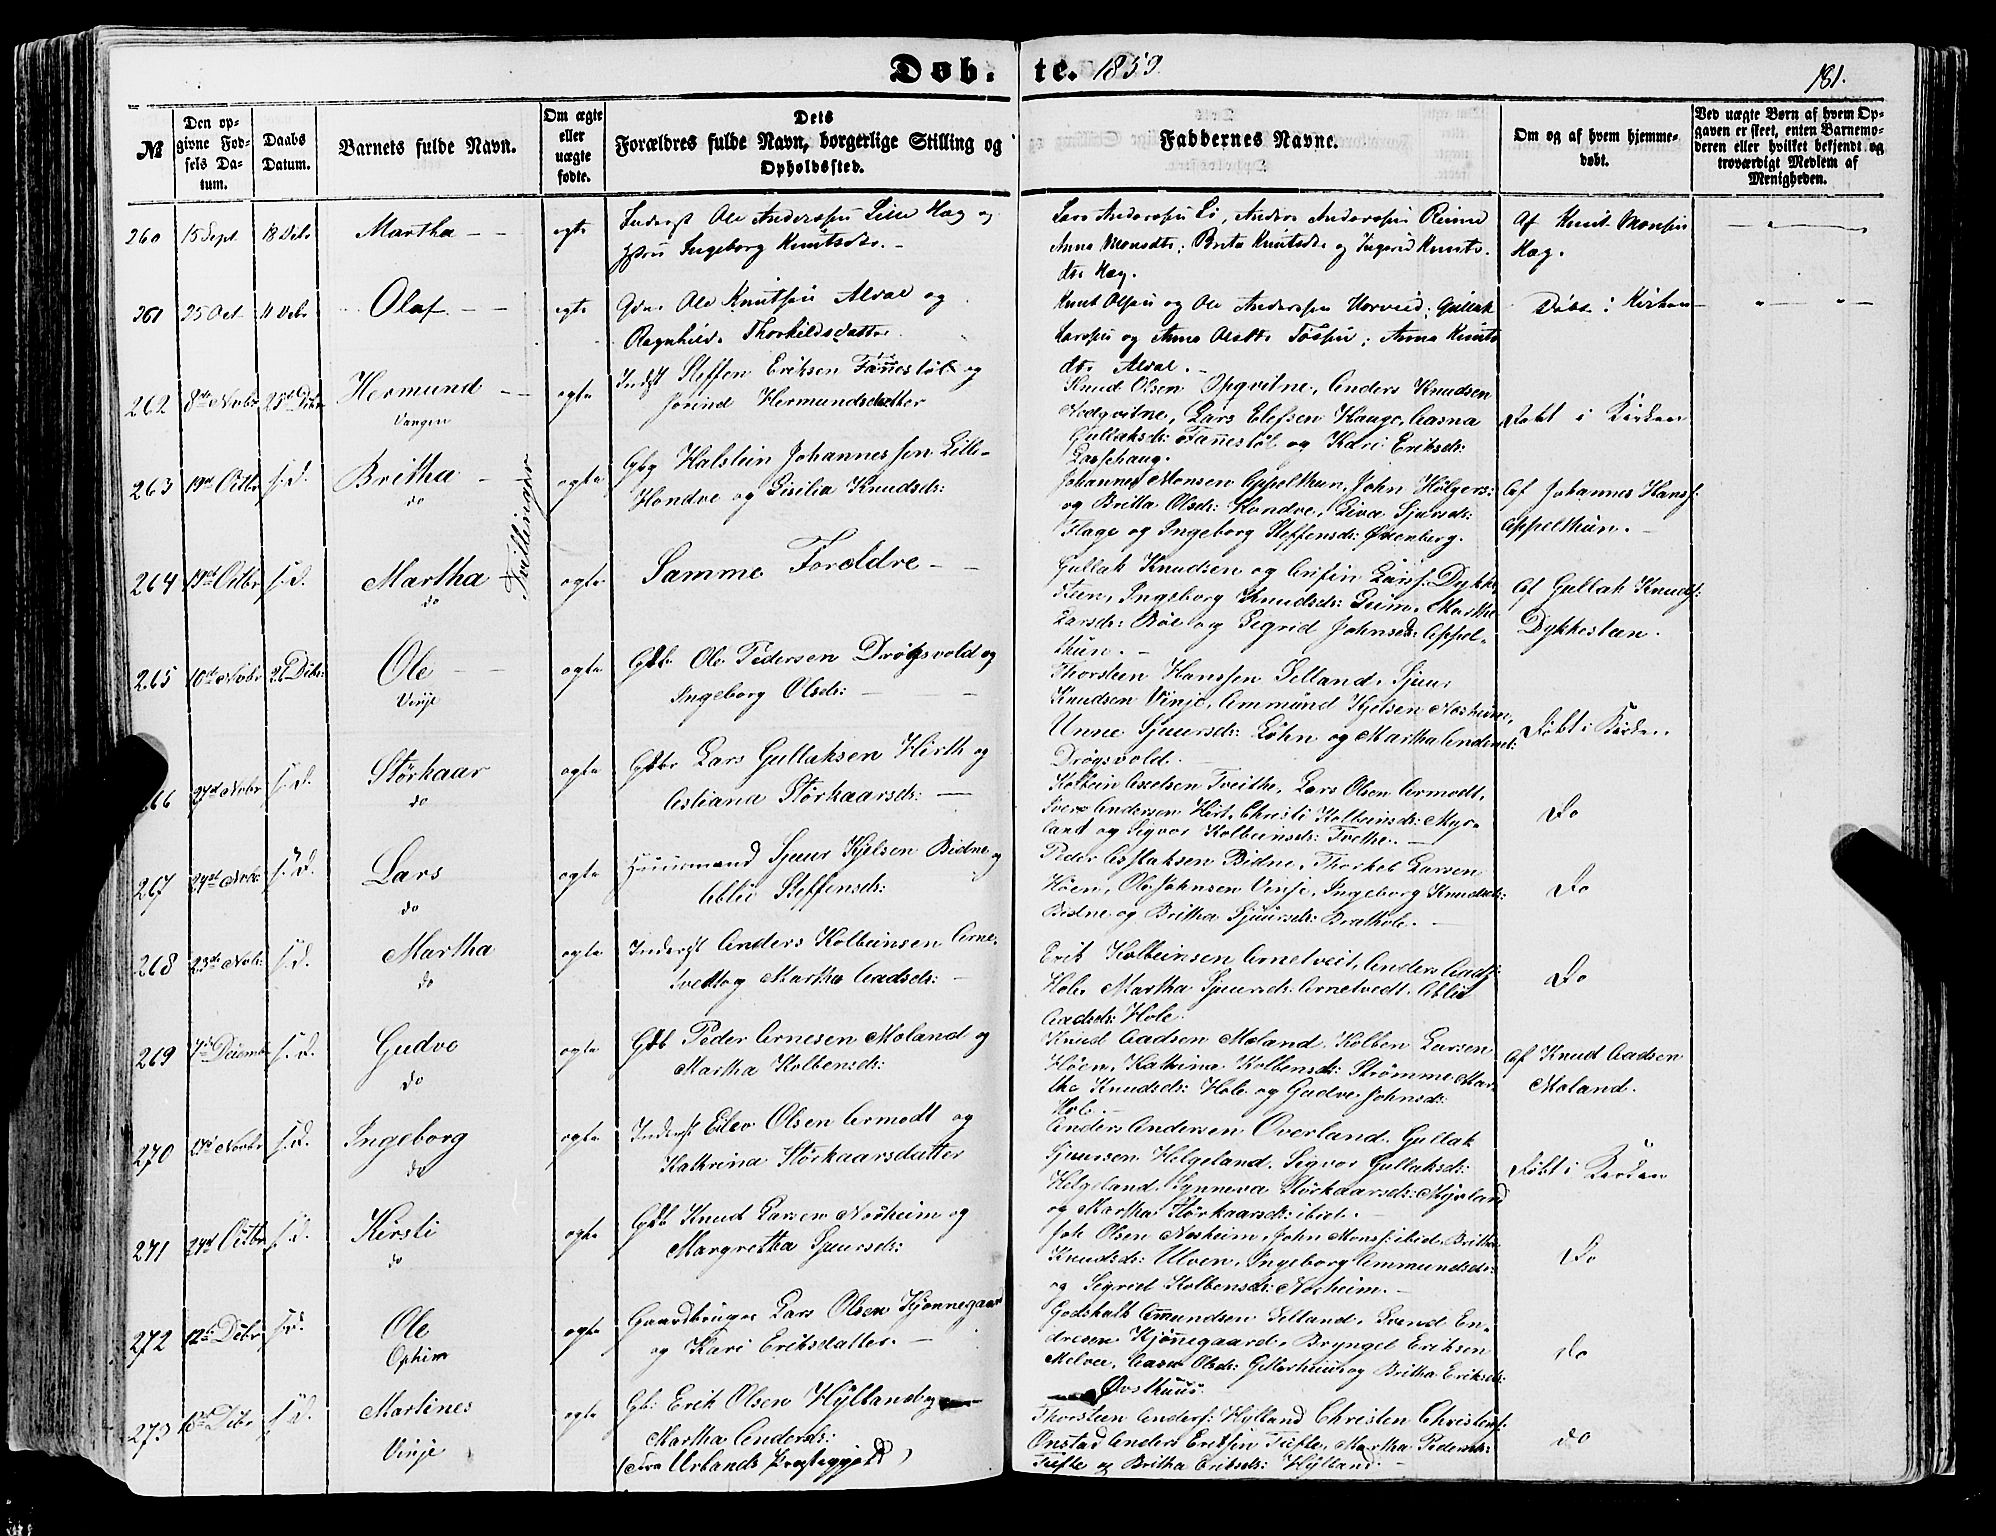 Døb- te. 1859. 181.
№
Den opgivne Fødsels Datum.
Daabs Datum.
Barnets fulde Navn.
Om ægte eller uægte fødte.
Dets Forældres fulde Navn, borgerlige Stilling og Opholdssted.
Faddernes Navne.
Om og af hvem hjemmedøbt.
Ved uægte Børn af hvem Opgaven er skeet, enten Barnemoderen eller hvilket bekjendt og troværdigt Medlem af Menigheden.
260 15 Sept 18 Debr Martha egte
Inderst Ole Andersen Lille Hæg og
Ingeborg Knutsdtr.
Lars Andersen Li, Anders Andersen Reime
Anna Monsdtr; Brita Knutsdtr og Ingerid Knuts-
dtr Hæg.
Af Knut Monsen
Hæg.
261 25 Oct 11 Debr Olaf egte
Ole Knutsen Alval og
Ragnhild Thorkildsdatter
Knut Olsen og Ole Andersen Horveid; Gullak
Larsen og Anna Olsdtr ; Anna Knuts
dtr Alval.
Døbt i Kirken
262 8de Novbr 25de Debr Hermund ægte
Vangen
Indst Steffen Eriksen Fannestøl og
Jorind Hermundsdatter
Knud Olsen Opqvitne, Anders Knudsen
Nedqvitne, Lars Elefsen Hauge, Aasna
Gullaksd: Fannestøl og Kari Eriksd:
Døbt i Kirken
263 19de Octbr s. D. Britha ægte
do
Tvillinger
Gbg Halstein Johannessen Lille-
Hondve og Sisilia Knudsd:
Johannes Monsen Appelthun, John Holgers:
og Britta Olsd: Hondve, Siva Sjursd:
Flage og Ingeborg Steffensd: Øvenberg.
Af Johannes Hanss:
Appelthun.
264 19de Octbr s. D. Martha ægte
do
Samme Foreldre
Gullak Knudsen og Arfin Larss: Dykke
steen, Ingeborg Knudsd: Giim, Martha
Larsd: Bøe og Sigrid Johnsd: Appel-
thun.
Af Gullak Knuds:
Dykkesteen.
265 10de Novbr 26 Debr: Ole ægte
Vinje
Gbr Ole Pedersen Drøgsvold og
Ingeborg Olsd:
Thorstein Hanssen Selland, Sjur
Knudsen Vinje, Ammund Kjelsen Norheim,
Unne Sjuursd: Løhn og Martha Andersd:
Drøgsvold.
Døbt i Kirken.
266 27de Novbr s. D. Størkaar ægte
do
Gbr Lars Gullaksen Hirth og
Astiana Størkaarsd:
Kolbein Axelsen Tveithe, Lars Olsen Armodt,
Iver Andersen Hirt, Christi Kolbeinsd: Myr-
land og Sigvor Kolbeinsd: Tvethe.
Do
267 24de Nov: s. D. Lars ægte
do
Huusmand Sjuur Kjelsen Bidne og
Ablie Steffensd:
Peder Aslaksen Bidne, Thorkel Larsen
Høen, Ole Johnsen Vinje, Ingeborg Knudsd:
Bidne og Britha Sjuursd: Brathole.
Do
268 23de Nov: s. D. Martha ægte
do
Inderst Anders Kolbeinsen Arne-
tvedt og Martha Aadsd:
Erik Kolbeinsen Arnetveit, Anders Aads:
Hole, Martha Sjuursd: Arnetvedt, Ablie
Aadsd: Hole.
Do
269 7de Decembr s. D. Gudve ægte
do
Gbb Peder Arnesen Moland og
Martha Kolbensd:
Knud Aadsen Moland, Kolben Larsen
Høen, Kathrina Kolbensd: Strømme, Mar-
tha Knudsd: Hole og Gudve Johnsd:
Hole.
Af Knud Aadsen
Moland.
270 17de Novbr s. D. Ingeborg ægte
do
Inderst Eilev Olsen Armodt og
Kathrina Størkaarsdatter
Anders Andersen Overland, Gullak
Sjuursen Helgeland, Sigvor Gullaksd:
Helgeland, Synneva Størkaarsd: Myrland
og Martha Størkaarsd: ibid.
Døbt i Kirken
271 24de Octbr s. D. Kirsti ægte
do
Gbb Knud Larsen Norheim og
Margretha Sjuursd:
Joh Olsen Norheim, John Monss: ibid, Britha
Knudsd: Ulven, Ingeborg Ammundsd:
og Sigrid Kolbensd: Norheim.
Do
272 12te Debr s. D. Ole ægte
Opheim
Gaardbruger Lars Olsen Kjønnegaard
og Kari Eriksdatter.
Godskalk Amundsen Selland, Svend En-
dresen Kjønnegaard, Bryngel Eriksen
Melve, Aasa Olsd: Gilderheim og Britha Eriksd:
Øvsthuus.
do
273 13de Debr s. D. Martines ægte
Vinje
Gb: Erik Olsen Hylland og
Martha Andersd:
(Fra Urlands Præstegjeld)
Thorsteen Anders: Hylland Christen Christens:
Onstad Anders Eriksen Tufte, Martha Pedersd:
Tufte og Britha Eriksd: Hylland.
do